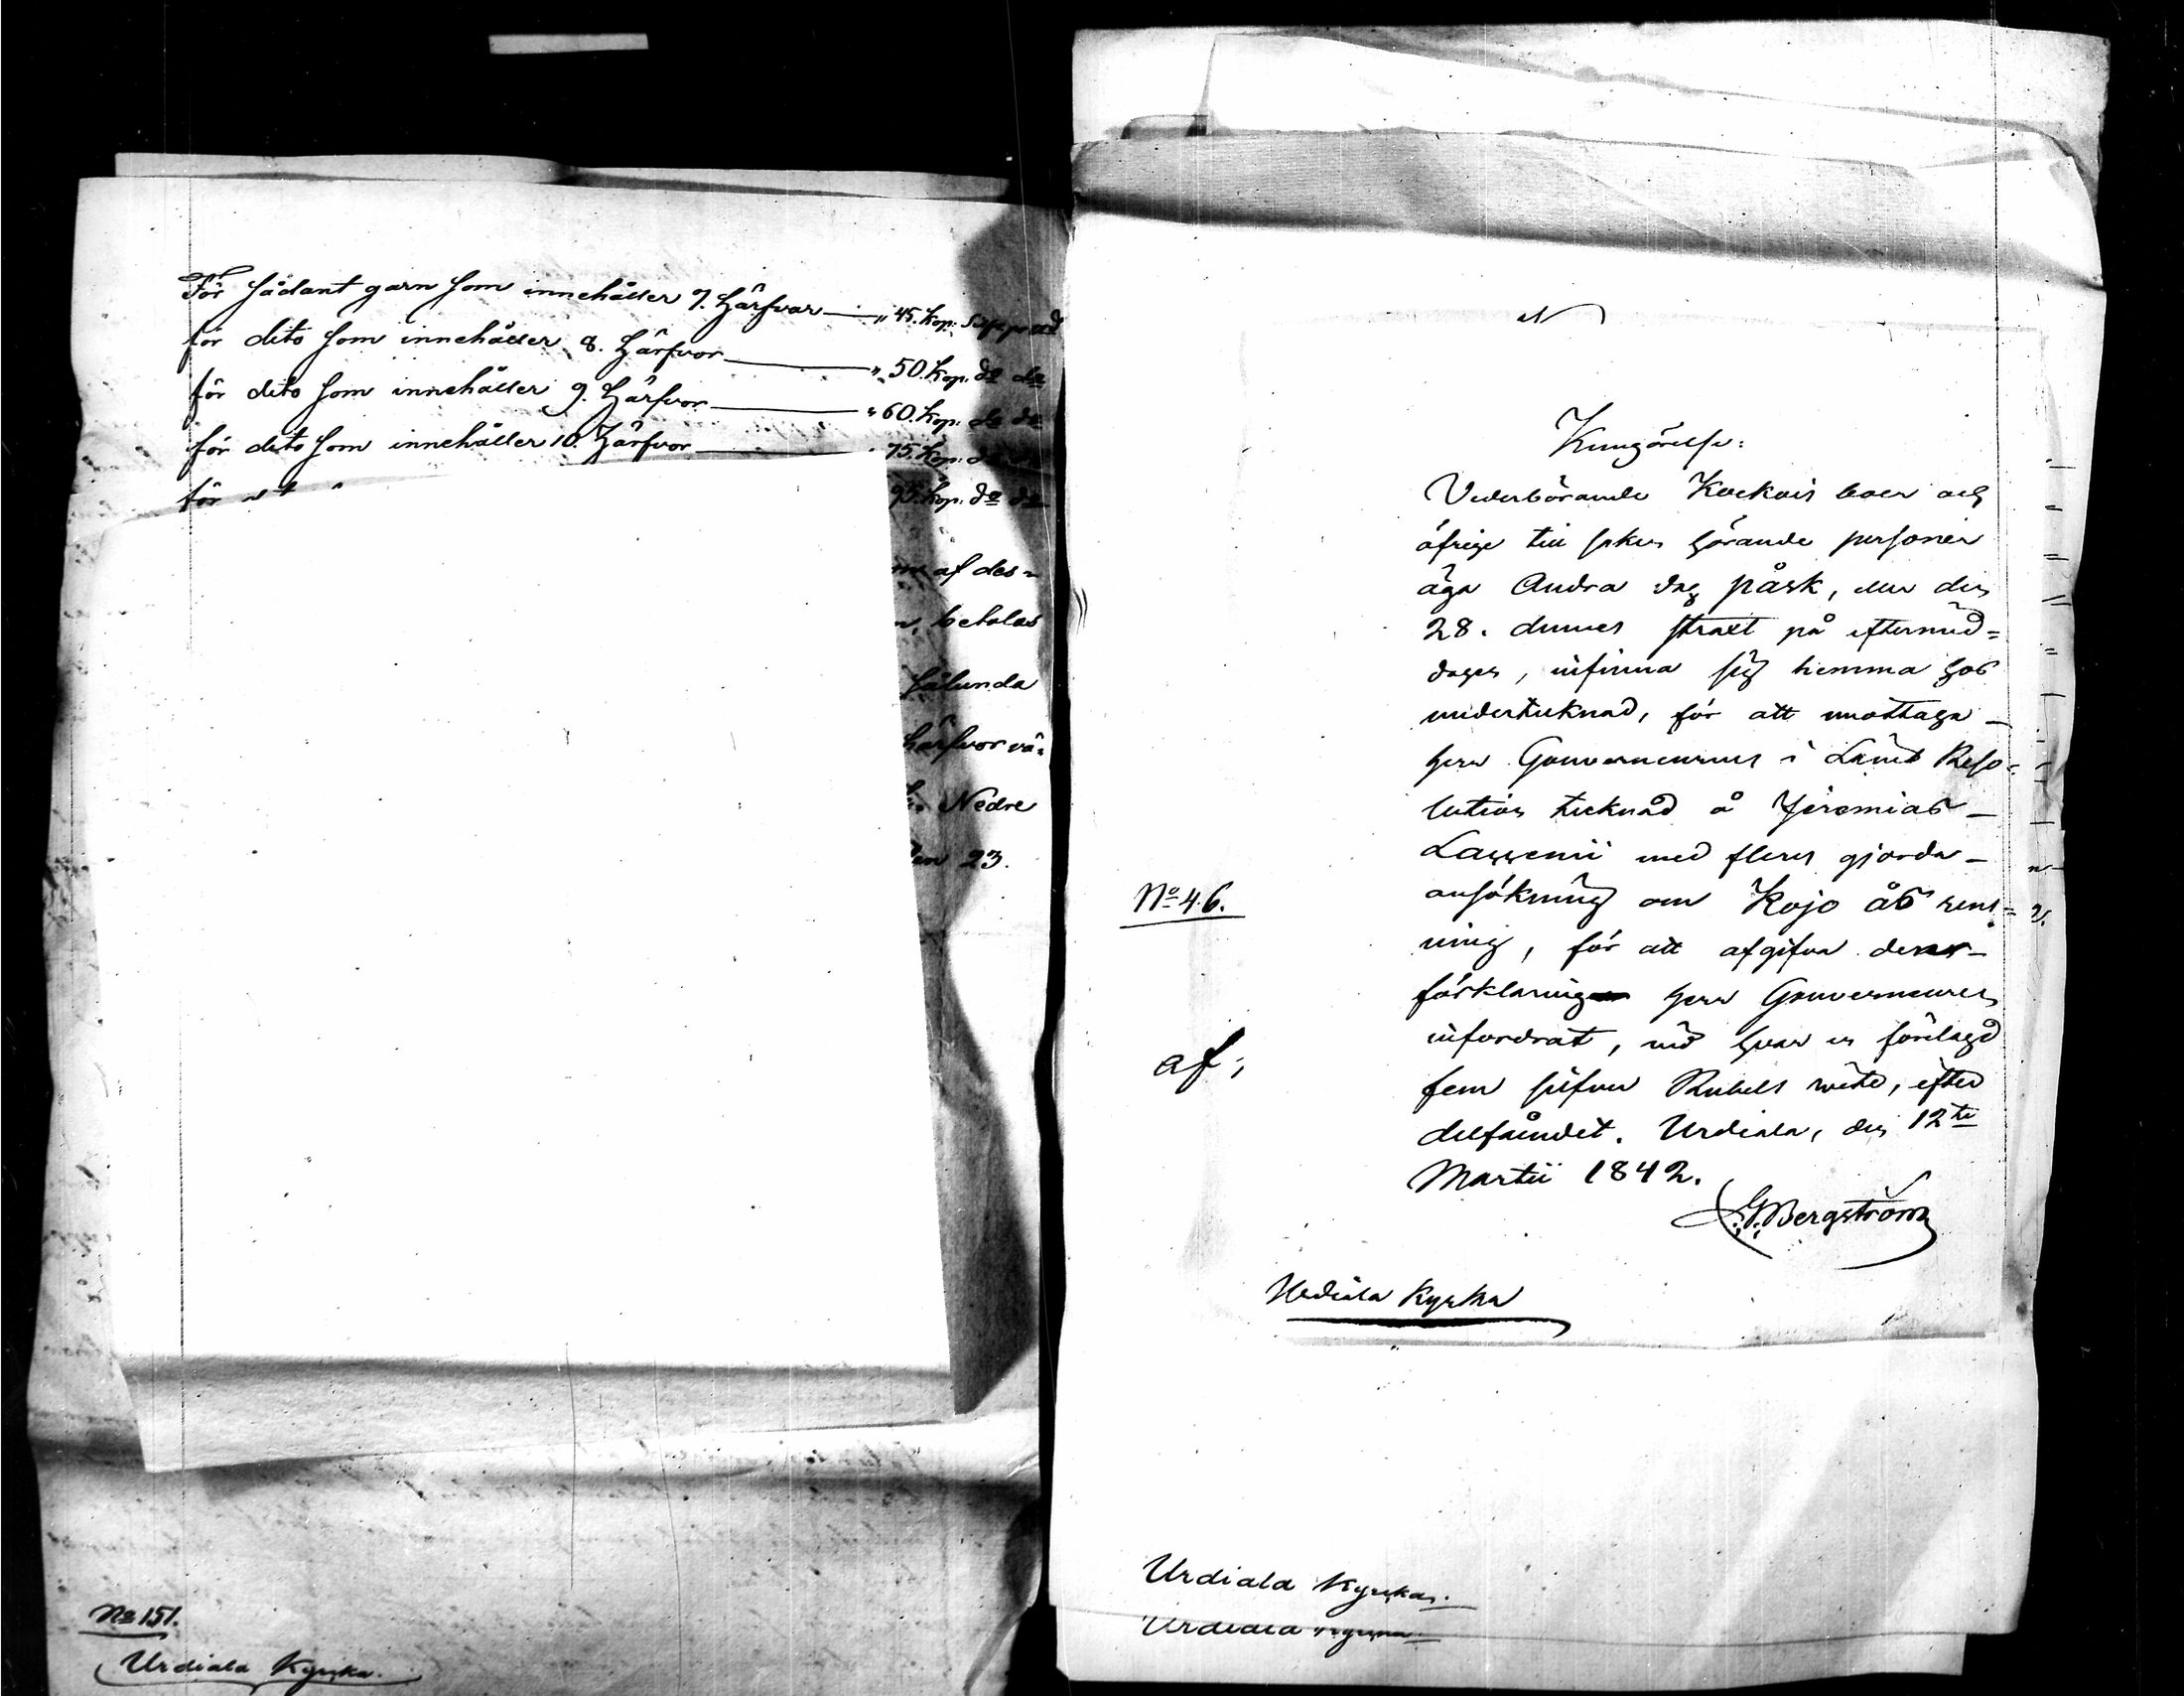 För sådant garn som innehåller 7. härfvor — " 45. Kop: Silf
för dito som innehåller 8. härfvor — " 50. Kop. do do
för dito som innehåller 9. härfvor — " 60. Kop. do do
för dito som innehåller 10. härfvor — 75. Kop: do
för 95. Kop. do do
af des=
betalas
sålunda
härfvor vä=
Nedre
den 23.
No 151.
Urdiala Kyrka.
Kungörelse:
Vederbörande Kockois boer och
öfrige till saken hörande personer
äga Andra dag påsk, eller den
28. dennes straxt på eftermid=
dagen, infinna sig hemma hos
undertecknad, för att mottaga
herr Gouverneurens i Länet Reso=
lution tecknad å Jeremias
med fleres gjorda
No 46.
ansökning om Kojo ås rens=
ning, för att afgifva den
förklaring herr Gouverneuren
infordrat, vid hvar en förelagd
af;
fem silfver Rubels wite, efter
delfåendet. Urdiala, den 12te
Martii 1842.
G. Bergström
Urdiala Kyrka
Urdiala Kyrka.
Urdiala Kyrka